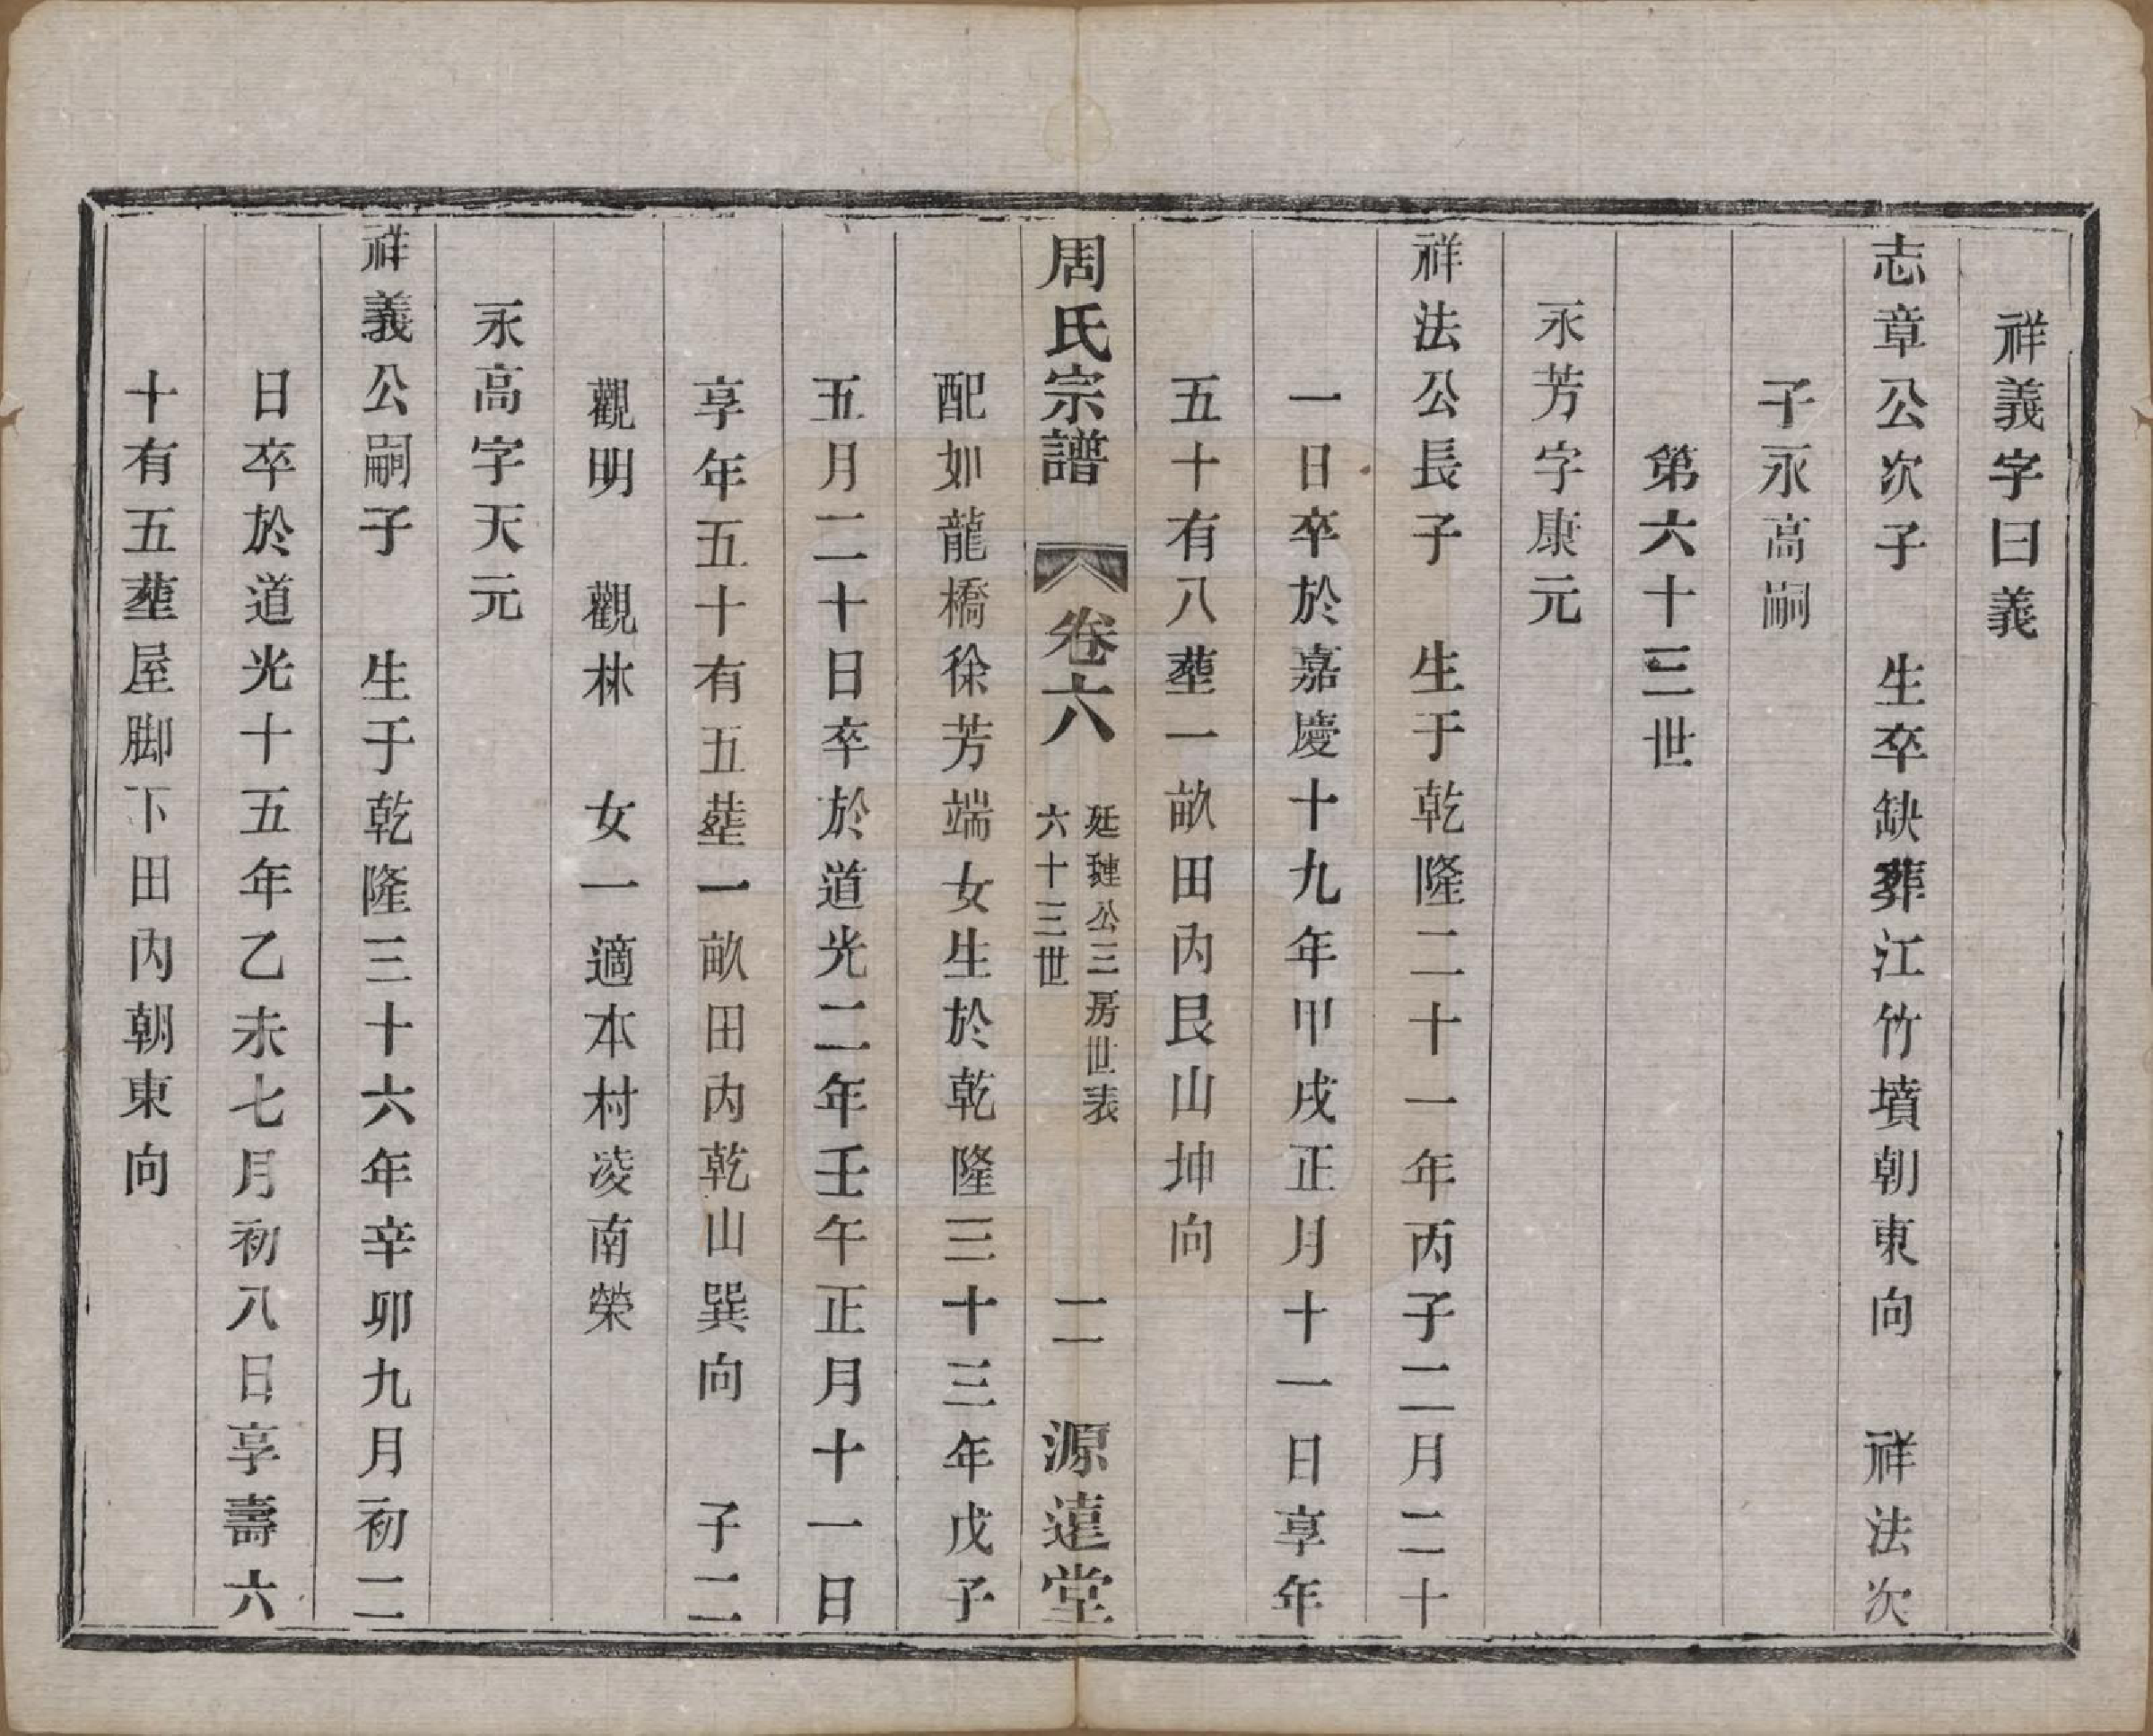 祥義字曰義
志章公次子　生卒缺葬江竹墳朝東向　祥法次
子永高嗣
第六十三世
永芳字康元
祥法公長子　生于乾隆二十一年丙子二月二十
一日卒於嘉慶十九年甲戌正月十一日享年
五十有八塟一畝田内艮山坤向
周氏宗譜　卷六　廷璉公三房世表　六十三世　二　源遠堂
配如龍橋徐芳端女生於乾隆三十三年戊子
五月二十日卒於道光二年壬午正月十一日
享年五十有五塟一畝田内乾山巽向　子二
觀明　觀林　女一適本村凌南榮
永高字天元
祥義公嗣子　生于乾隆三十六年辛卯九月初二
日卒於道光十五年乙未七月初八日享壽六
十有五塟屋脚下田内朝東向